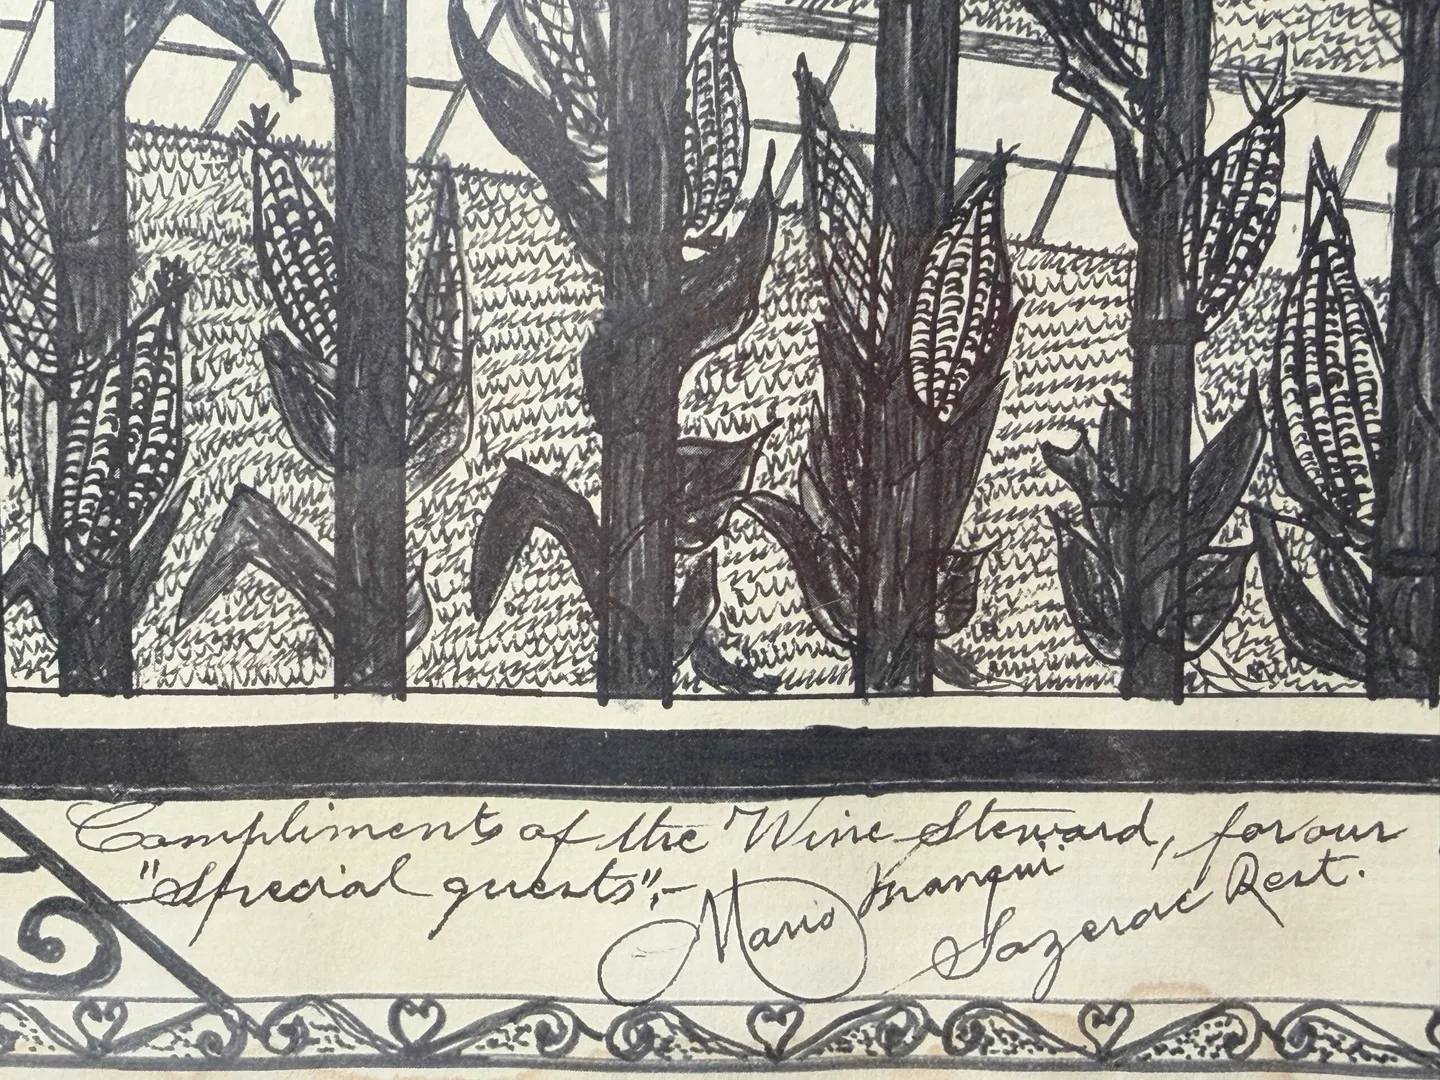 Compliments of the Wine Steward, for our
"Special guests",-
Mario
Sazerac Rest.